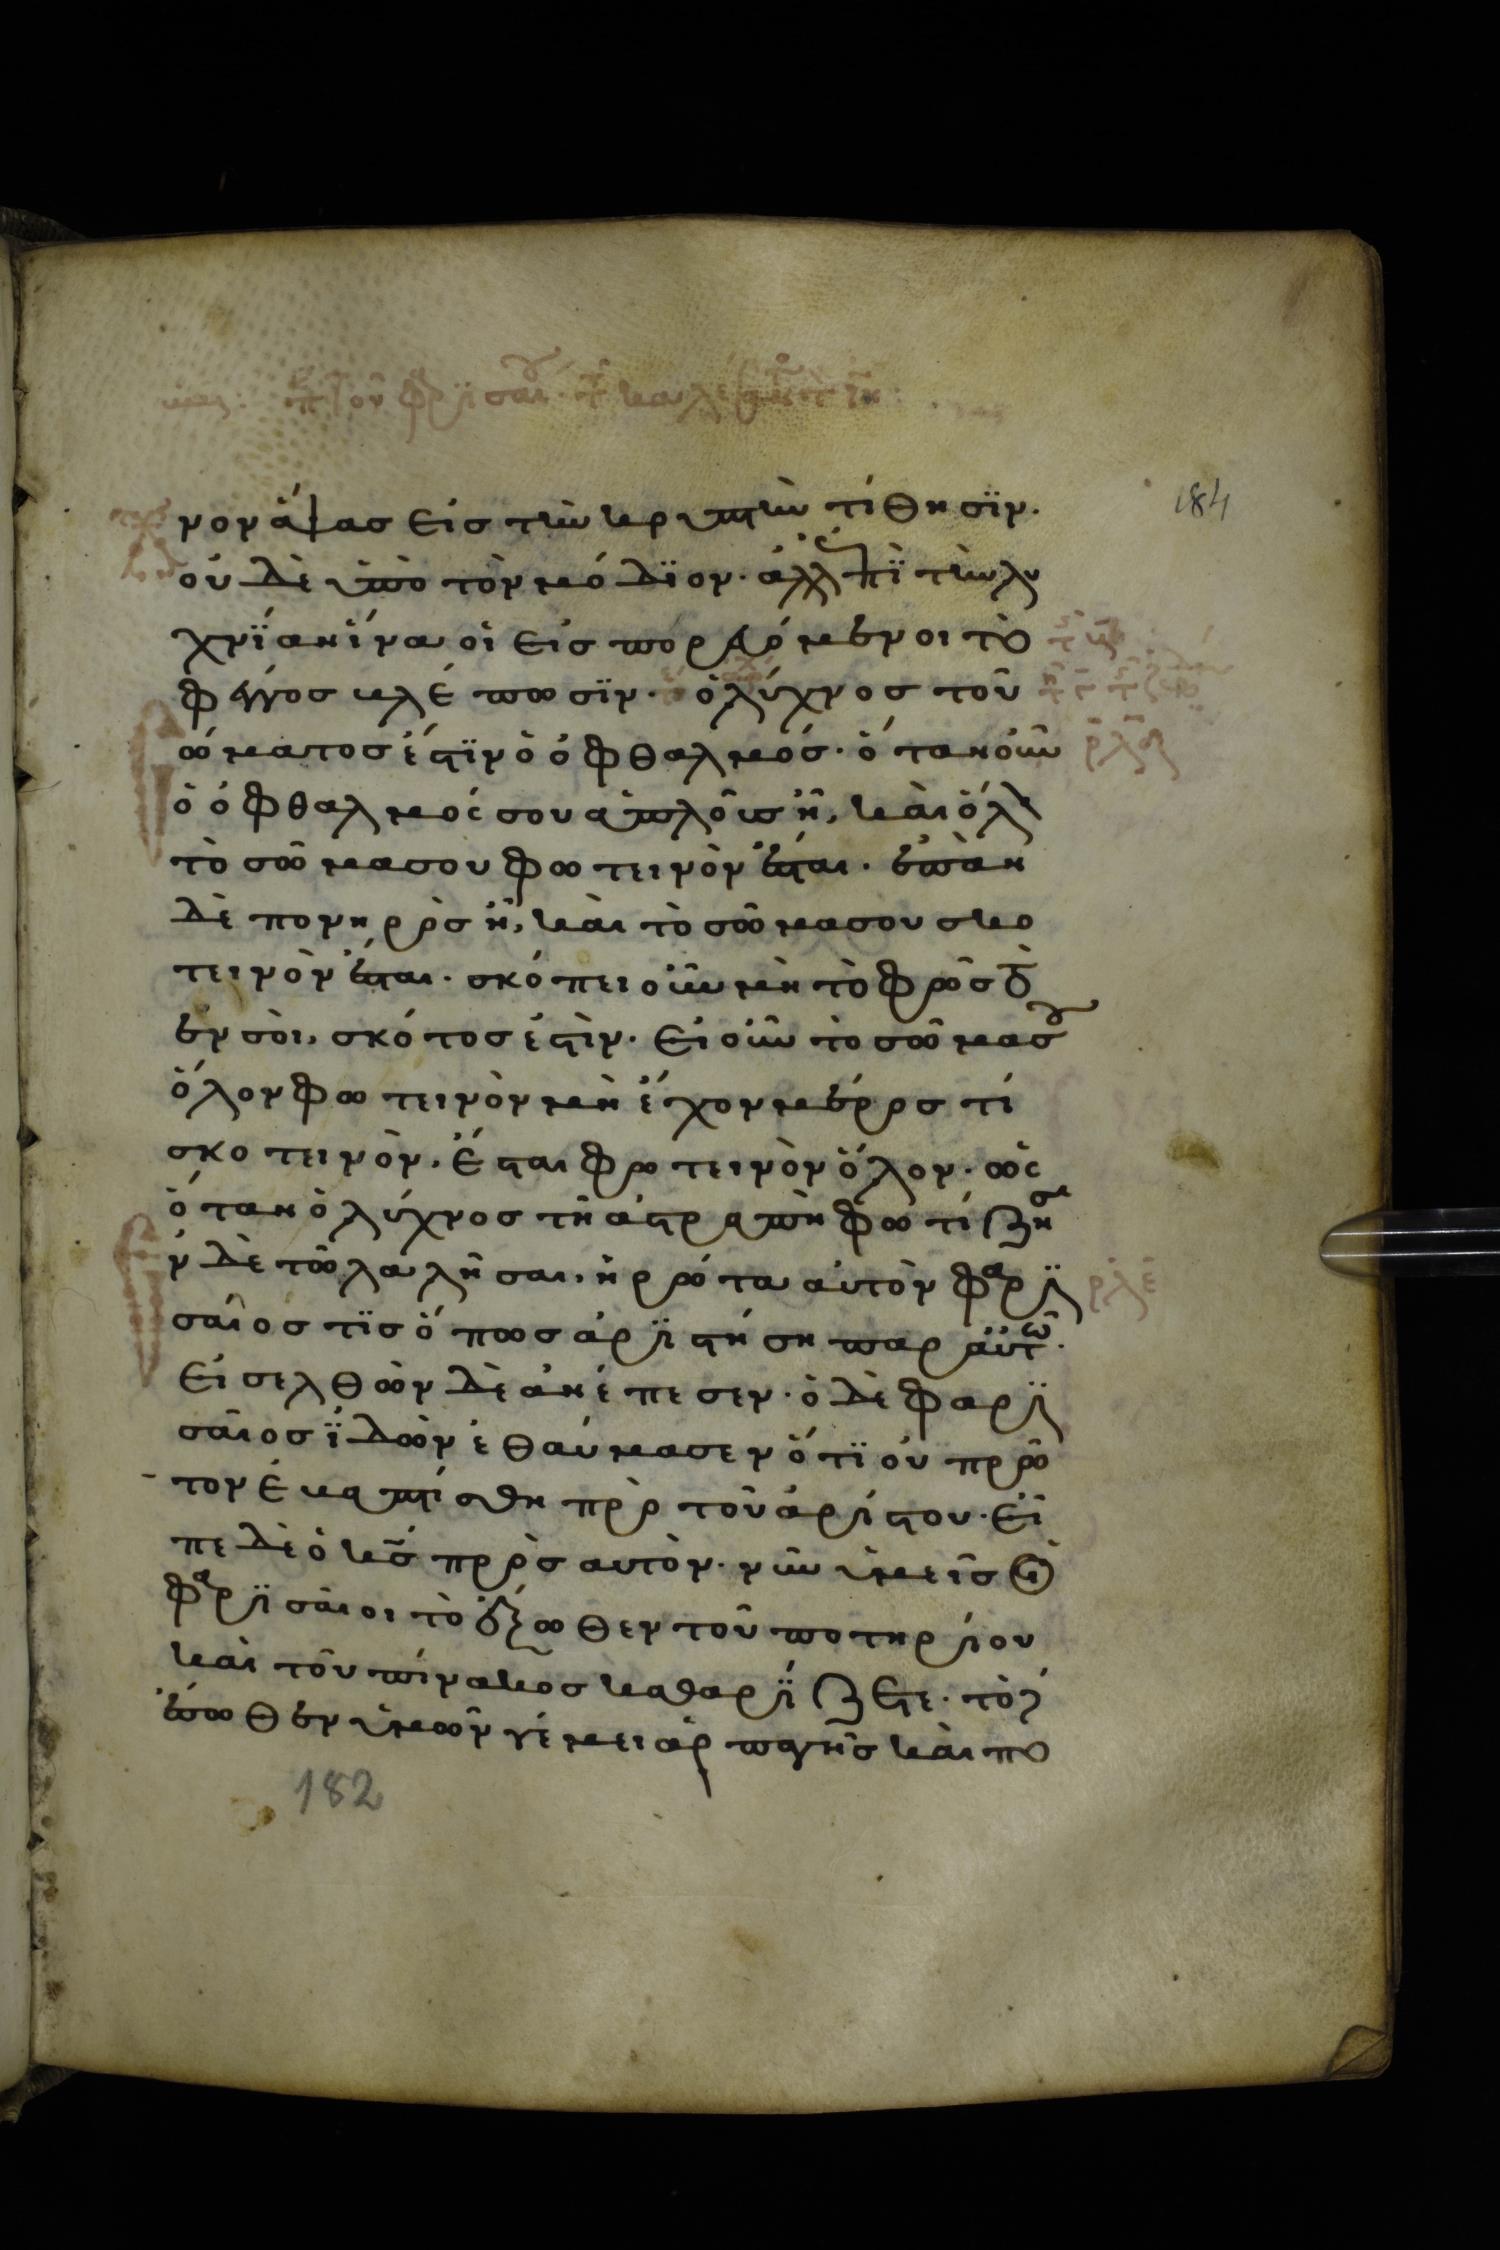 184
νον ἅψας εἰς τὴν κρυπτὴν τίθησϊν·
οὐδὲ ὑπὸ τὸν μόδϊον· ἀλλ ἐπῒ τὴν λυ
χνΐαν ἵνα οἱ εἰσπορευόμενοι τὸ
φέγγος βλέπωσϊν· ὁ λύχνος τοῦ
σώματος ἐστϊν ὁ ὀφθαλμός· ὅταν οὖν
ὁ ὀφθαλμός σου ἁπλοῦς ἦ, καὶ ὅλον
τὸ σῶμα σου φωτεινὸν ἔσται· ἐπὰν
δὲ πονηρὸς ἦ, καὶ τὸ σῶμα σου σκο
τεινὸν ἔσται· σκόπει οὖν μὴ τὸ φῶς τὸ
ἐν σοὶ, σκότος ἐστὶν· εἰ οὖν τὸ σῶμα σου
ὅλον φωτεινὸν μὴ ἔχον μέρος τί
σκοτεινὸν, ἔσται φωτεινὸν ὅλον· ὡς
ὅταν ὁ λύχνος τῆ ἀστραπῆ φωτίζη σε
ν δὲ τῶ λαλῆσαι, ἠρώτα αὐτὸν φαρϊ
σαῖος τῒς ὅπως ἀρϊστήση παρ αὐτῶ·
εἰσελθὼν δὲ ἀνέπεσεν· ὁ δὲ φαρϊ
σαῖος ἰδὼν ἐθαύμασεν ὅτϊ οὐ πρῶ
τον ἐβαπτίσθη πρὸ τοῦ ἀρίστου· εἶ
πε δὲ ὁ κς πρὸς αυτὸν· νῦν ὑμεῖς οἱ
φαρϊσαῖοι τὸ ἔξωθεν τοῦ ποτηρίου
καὶ τοῦ πίνακος καθαρΐζετε· τὸ
ἔσωθεν ὑμῶν γέμει ἁρπαγῆς καὶ πο
182